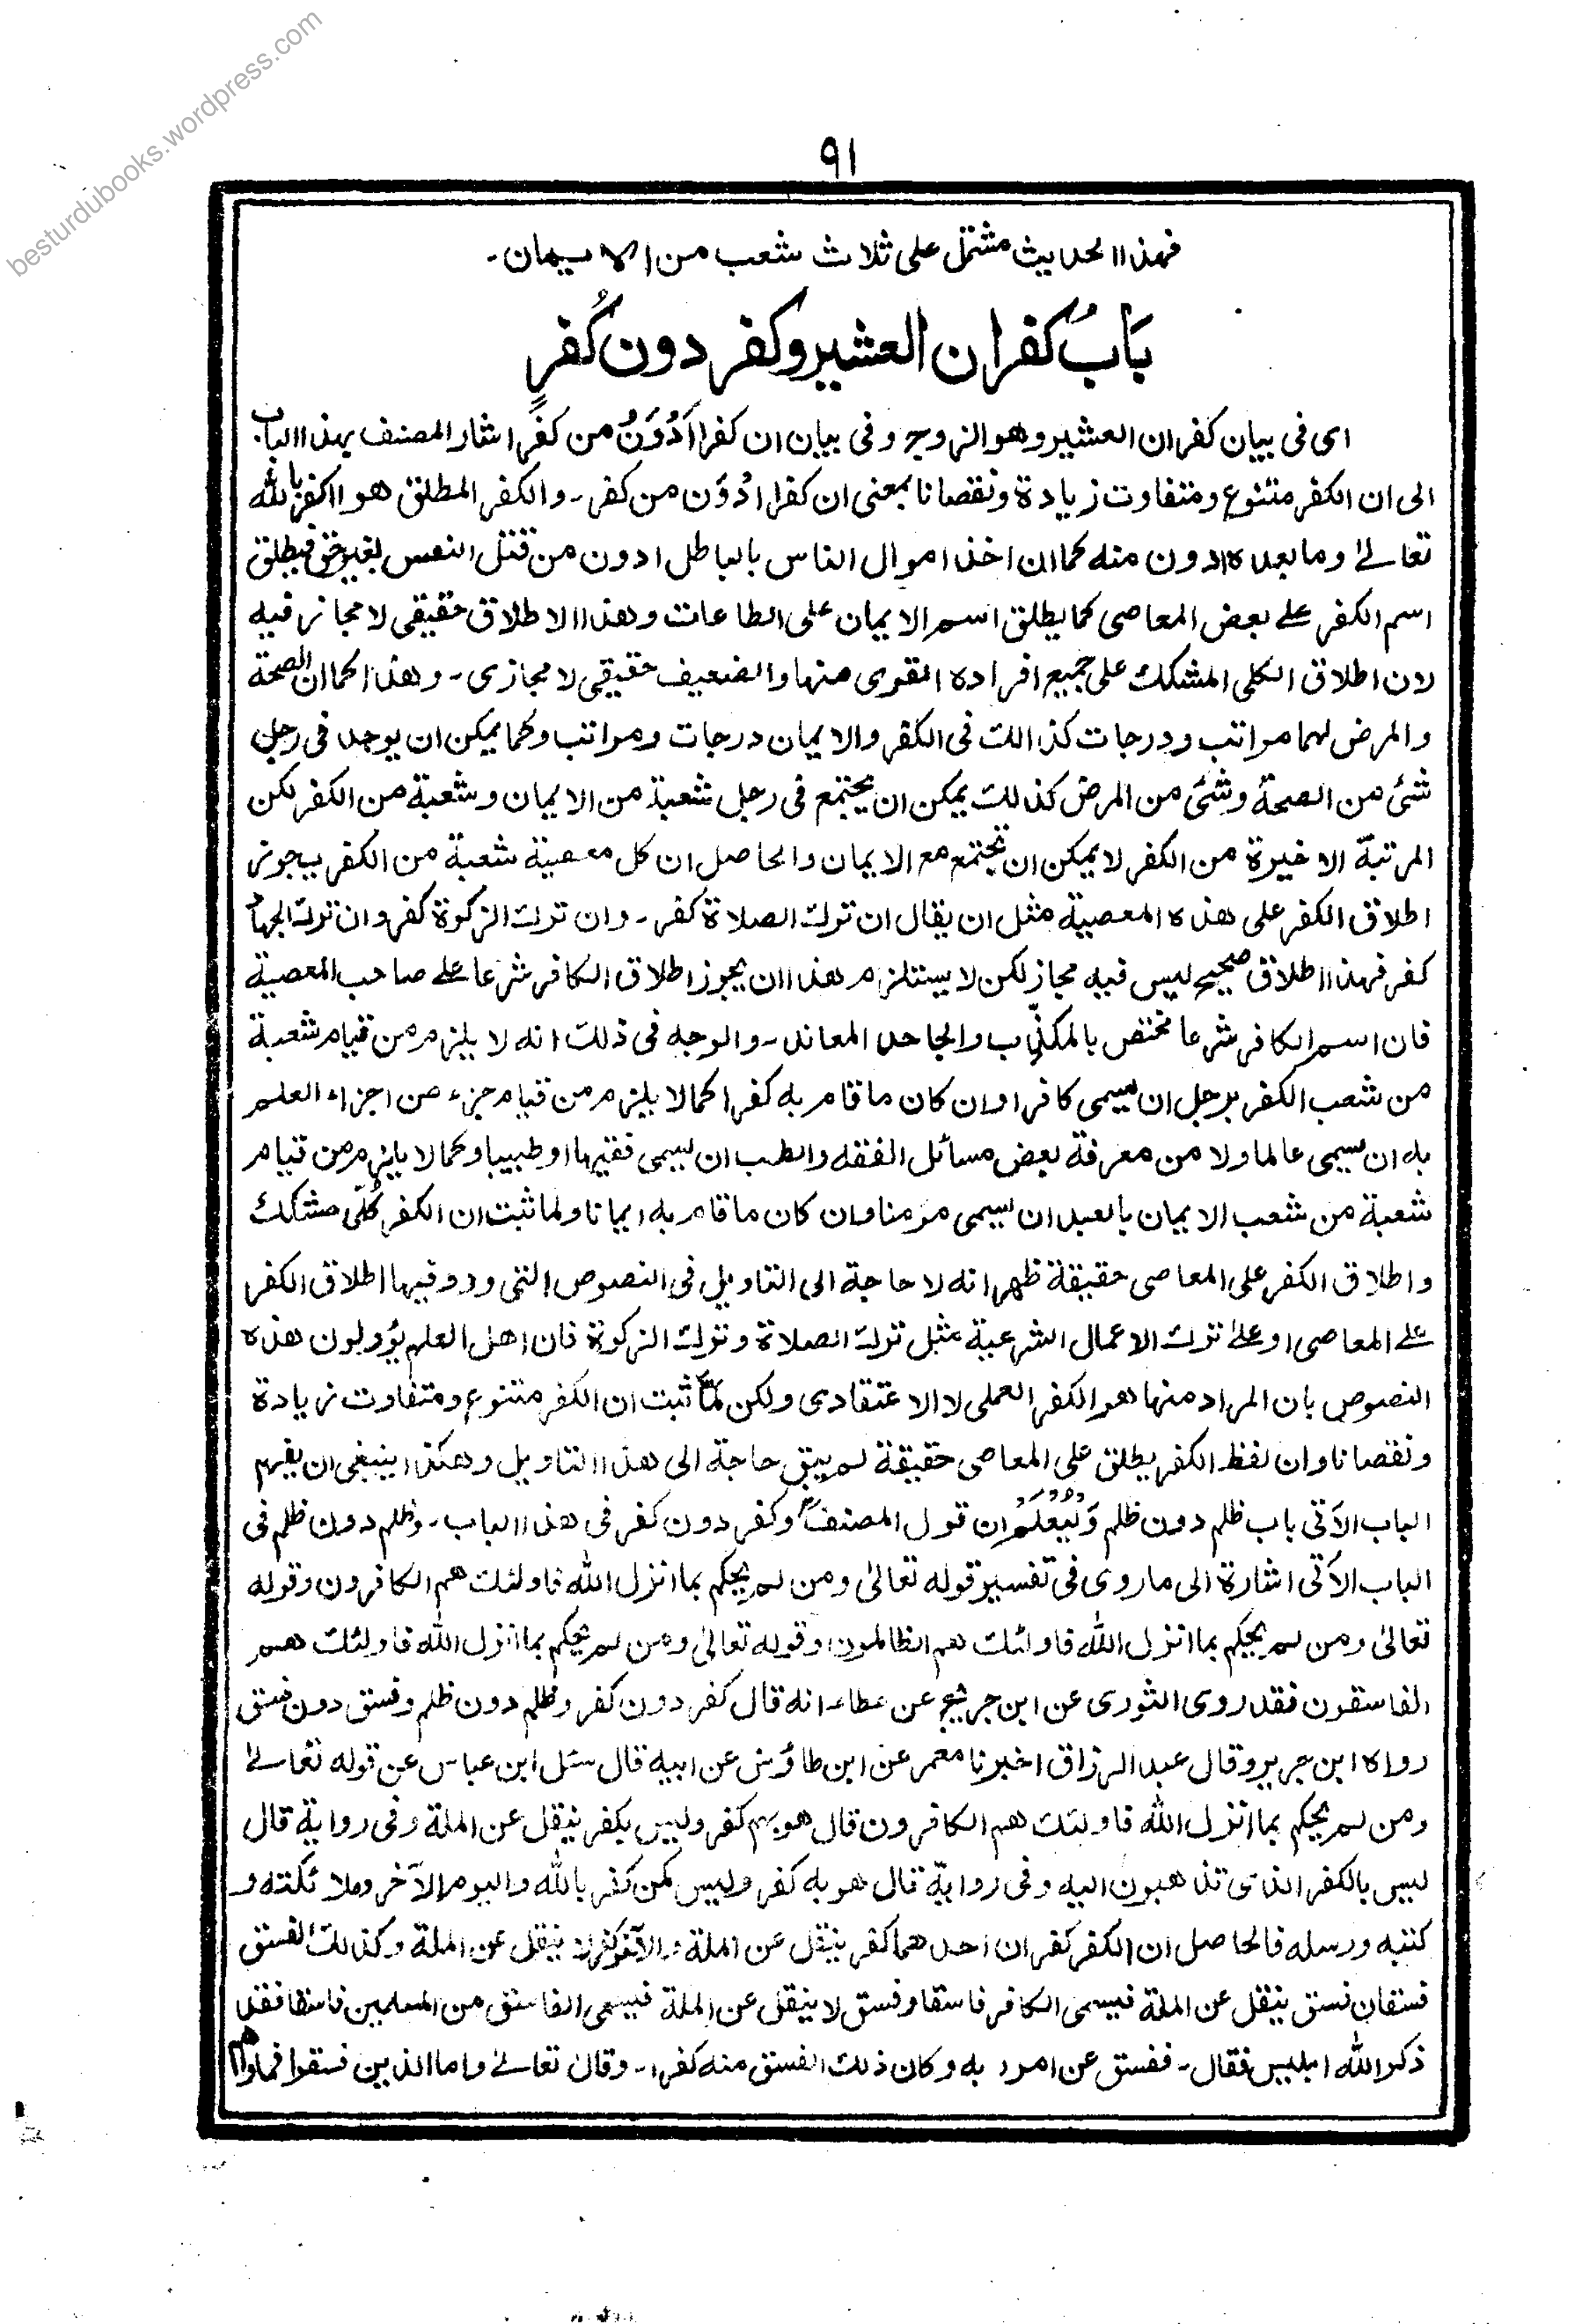 besturdubooks.wordpress.com
٩١
فهذا الحديث مشتمل على ثلاث شعب من الايمان۔
بَابُ كفران العشير وكفر دون كُفرٍ
اى فى بيان كفران العشير وهو الزوج وفى بيان ان كفرا اَدْوَنُ من كفرٍ اشار المصنف بهذا الباب
الى ان الكفر متنوع ومتفاوت زيادة ونقصانا بمعنى ان كفرا ادْوَن من كفر۔ والكفر المطلق هو الكفر بالله
تعالےٰ وما بعده ادون منه كما ان اخذ اموال الناس بالباطل ادون من قتل النفس بغير حق فيطلق
اسم الكفر علے بعض المعاصى كما يطلق اسم الايمان على الطاعات وهذا الاطلاق حقيقى لا مجاز فيه
لان اطلاق الكلى المشكك على جميع افراده القوى منها والضعيف حقيقى لا مجازى۔ وهذا كما ان الصحة
والمرض لهما مراتب ودرجات كذالك فى الكفر والايمان درجات ومراتب وكما يمكن ان يوجد فى رجل
شئ من الصحة وشئ من المرض كذلك يمكن ان يجتمع فى رجل شعبة من الايمان وشعبة من الكفر لكن
المرتبة الاخيرة من الكفر لا يمكن ان تجتمع مع الايمان والحاصل ان كل معصية شعبة من الكفر يجوز
اطلاق الكفر على هذه المعصية مثل ان يقال ان ترك الصلاة كفر۔ وان ترك الزكوة كفر وان ترك الجهاد
كفر فهذا اطلاق صحيح ليس فيه مجاز لكن لا يستلزم هذا ان يجوز اطلاق الكافر شرعا علے صاحب المعصية
فان اسم الكافر شرعا مختص بالمكذّب والجاحد المعاند۔ والوجه فى ذلك انه لا يلزم من قيام شعبة
من شعب الكفر برجل ان يسمى كافرا وان كان ما قام به كفرا كما لا يلزم من قيام جزء من اجزاء العلم
به ان يسمى عالما ولا من معرفة بعض مسائل الفقه والطب ان يسمى فقيها او طبيبا وكما لا يلزم من قيام
شعبة من شعب الايمان بالعبد ان يسمى مومنا وان كان ما قام به ايمانا ولما ثبت ان الكفر كُلّى مشكك
واطلاق الكفر على المعاصى حقيقة ظهر انه لا حاجة الى التاويل فى النصوص التى ورد فيها اطلاق الكفر
علے المعاصى او علےٰ ترك الاعمال الشرعية مثل ترك الصلاة وترك الزكوة فان اهل العلم يؤولون هذه
النصوص بان المراد منها هو الكفر العملى لا الاعتقادى ولكن لمّا ثبت ان الكفر متنوع ومتفاوت زيادة
ونقصانا وان لفظ الكفر يطلق على المعاصى حقيقة لم يبق حاجة الى هذا التاويل وهكذا ينبغى ان يفهم
الباب الآتى باب ظلم دون ظلم وَلْيُعْلَمْ ان قول المصنفؒ وكفر دون كفر فى هذا الباب۔ وظلم دون ظلم فى
الباب الآتى اشارة الى ما روى فى تفسير قوله تعالىٰ ومن لم يحكم بما انزل الله فاولئك هم الكافرون وقوله
تعالىٰ ومن لم يحكم بما انزل الله فاولئك هم الظالمون وقوله تعالىٰ ومن لم يحكم بما انزل الله فاولئك هم
الفاسقون فقد روى الثورى عن ابن جريج عن عطاء انه قال كفر دون كفر وظلم دون ظلم وفسق دون فسق
رواه ابن جرير وقال عبد الرزاق اخبرنا معمر عن ابن طاؤس عن ابيه قال سئل ابن عباس عن قوله تعالےٰ
ومن لم يحكم بما انزل الله فاولئك هم الكافرون قال هو بهم كفر وليس بكفر ينقل عن الملة وفى رواية قال
ليس بالكفر الذى تذهبون اليه وفى رواية قال هو به كفر وليس كمن كفر بالله واليوم الآخر وملائكته و
كتبه ورسله فالحاصل ان الكفر كفران احدهما كفر ينقل عن الملة والآخر كفر لا ينقل عن الملة وكذلك الفسق
فسقان فسق ينقل عن الملة فيسمى الكافر فاسقا وفسق لا ينقل عن الملة فيسمى الفاسق من المسلمين فاسقا فقد
ذكر الله ابليس فقال۔ ففسق عن امر ربه وكان ذلك الفسق منه كفرا۔ وقال تعالےٰ واما الذين فسقوا فماواهم